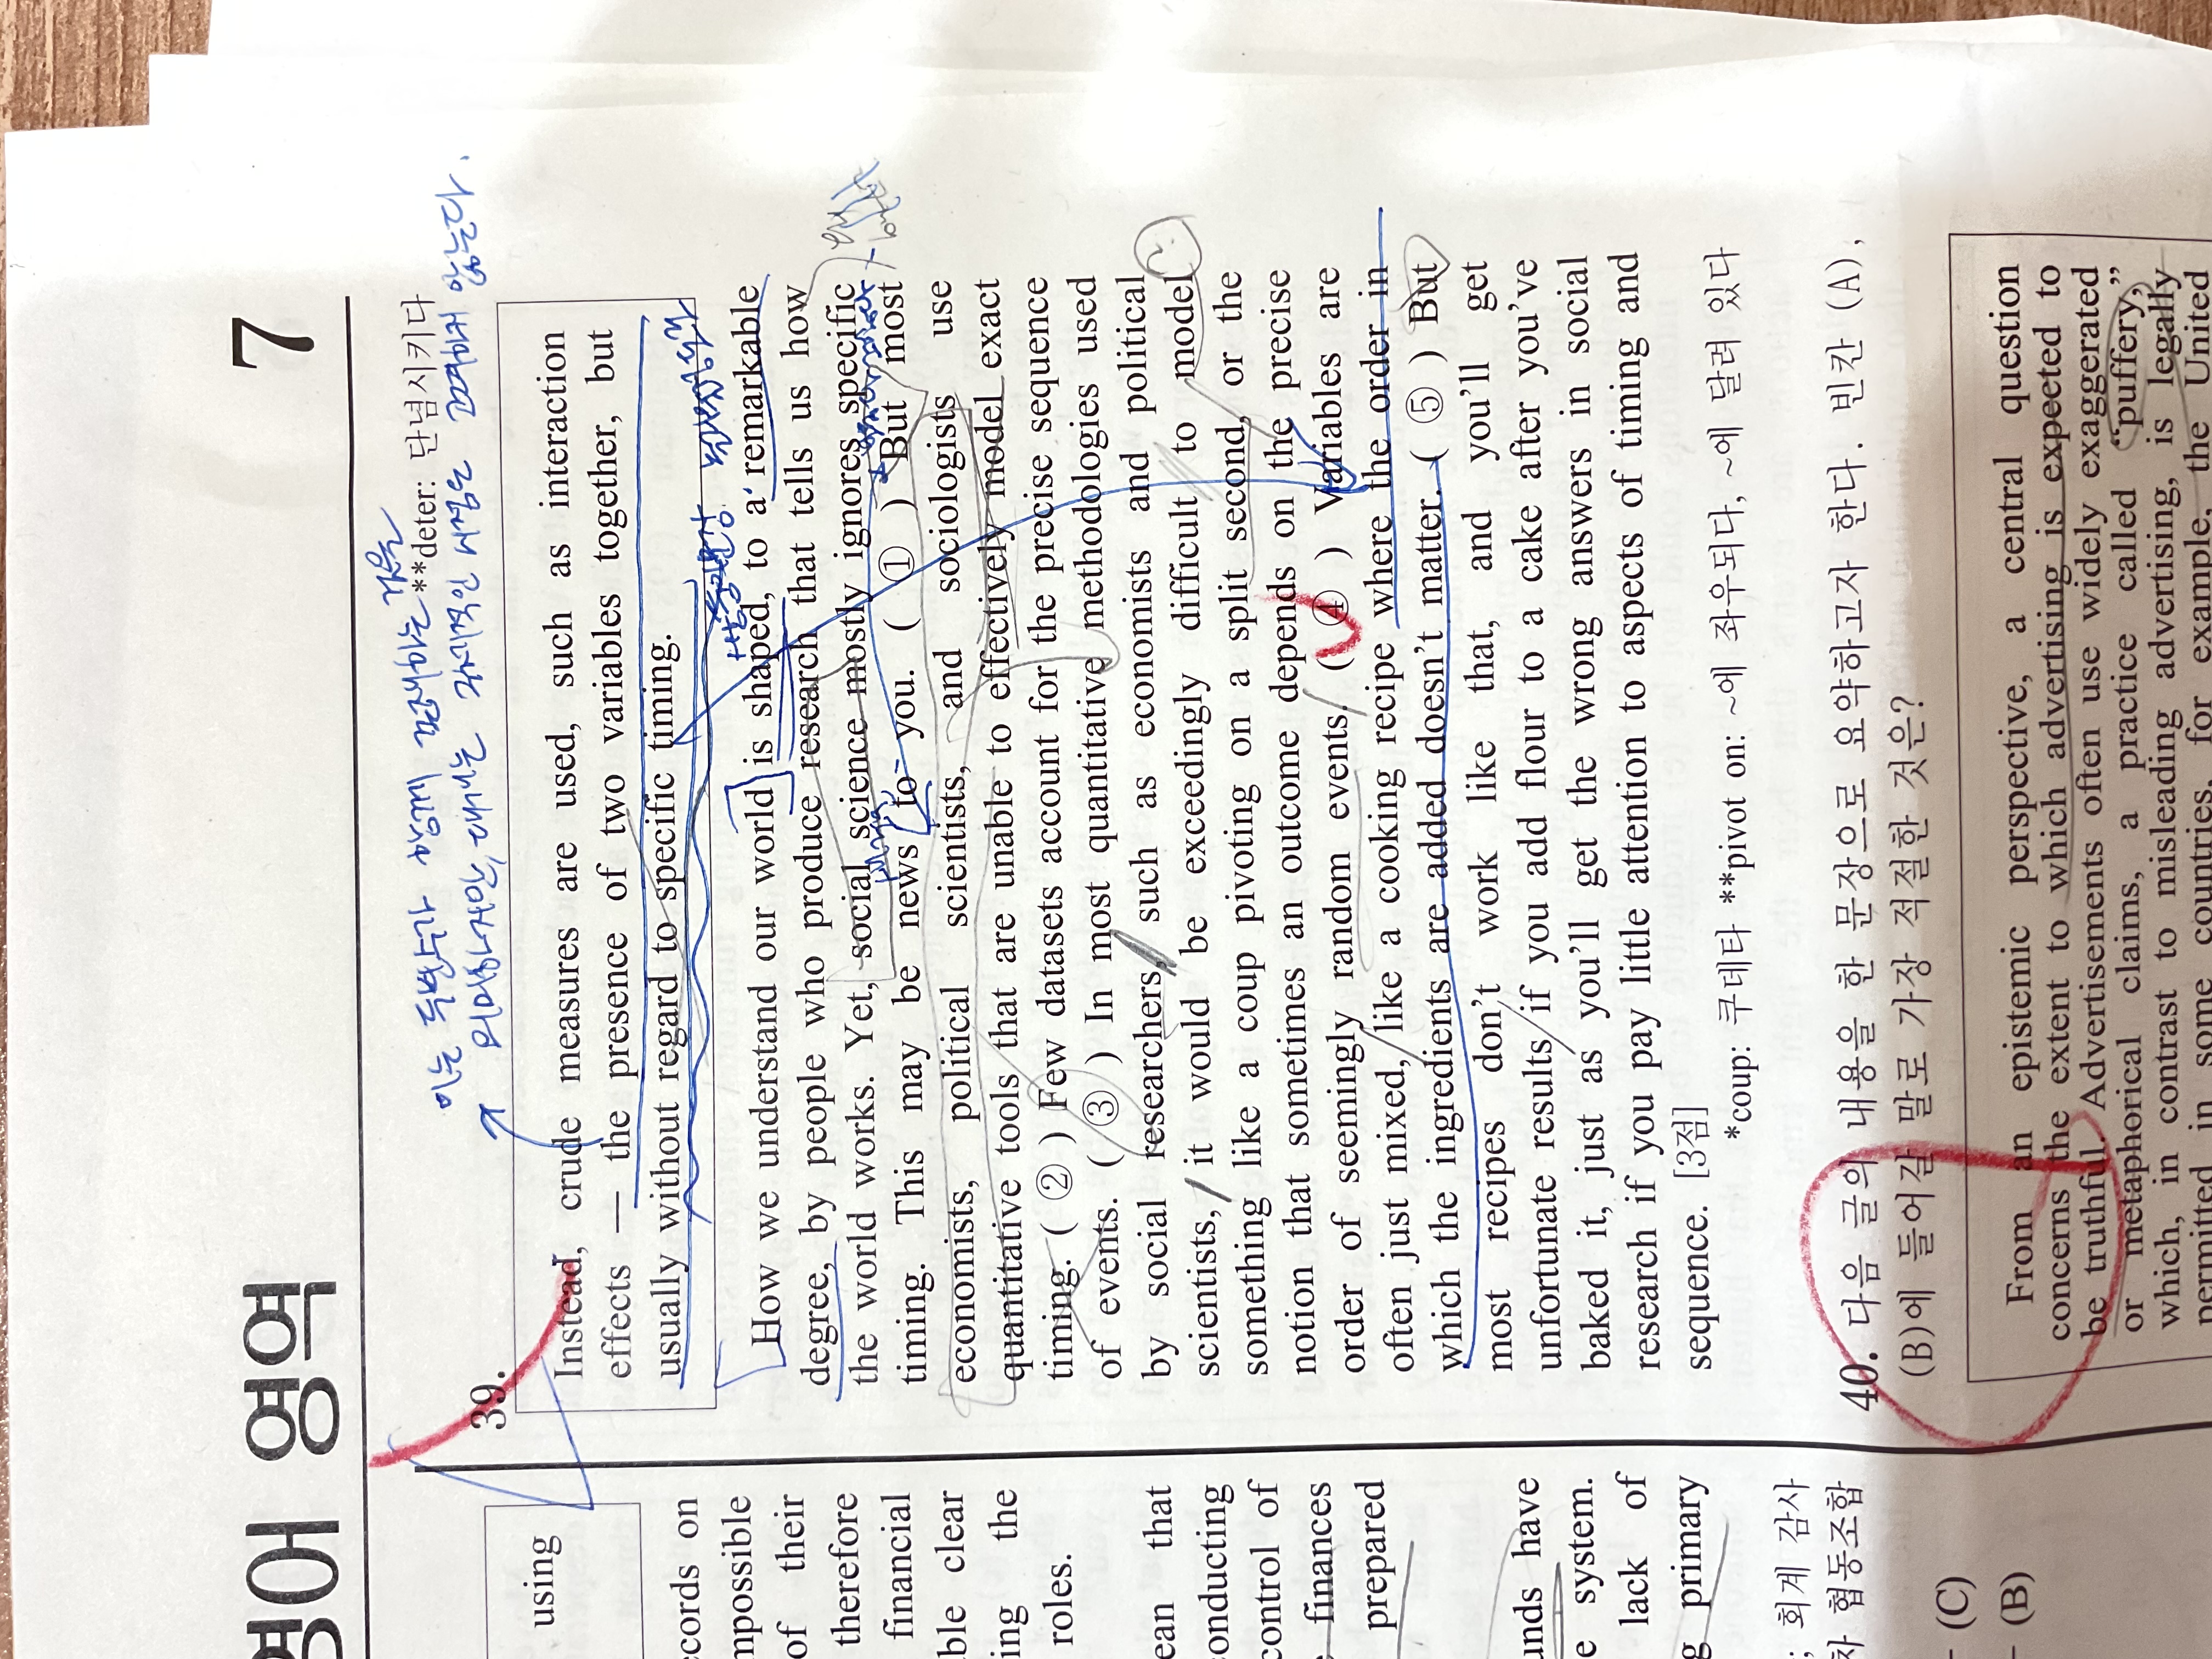 영어 영역
7
using
cords on
mpossible
of their
therefore
financial
ble clear
ing the
roles.
ean that
conducting
control of
finances
prepared
unds have
e system.
lack of
g primary
; 회계 감사
차 협동조합
- (C)
- (B)
**deter: 단념시키다
39.
Instead, crude measures are used, such as interaction
effects — the presence of two variables together, but
usually without regard to specific timing.
How we understand our world is shaped, to a remarkable
degree, by people who produce research that tells us how
the world works. Yet, social science mostly ignores specific
timing. This may be news to you. ( ① ) But most
economists, political scientists, and sociologists use
quantitative tools that are unable to effectively model exact
timing. ( ② ) Few datasets account for the precise sequence
of events. ( ③ ) In most quantitative methodologies used
by social researchers, such as economists and political
scientists, it would be exceedingly difficult to model
something like a coup pivoting on a split second, or the
notion that sometimes an outcome depends on the precise
order of seemingly random events. ( ④ ) Variables are
often just mixed, like a cooking recipe where the order in
which the ingredients are added doesn't matter. ( ⑤ ) But
most recipes don't work like that, and you'll get
unfortunate results if you add flour to a cake after you've
baked it, just as you'll get the wrong answers in social
research if you pay little attention to aspects of timing and
sequence. [3점]
*coup: 쿠데타 **pivot on: ~에 좌우되다, ~에 달려 있다
40. 다음 글의 내용을 한 문장으로 요약하고자 한다. 빈칸 (A),
(B)에 들어갈 말로 가장 적절한 것은?
From an epistemic perspective, a central question
concerns the extent to which advertising is expected to
be truthful. Advertisements often use widely exaggerated
or metaphorical claims, a practice called "puffery,"
which, in contrast to misleading advertising, is legally
permitted in some countries, for example, the United